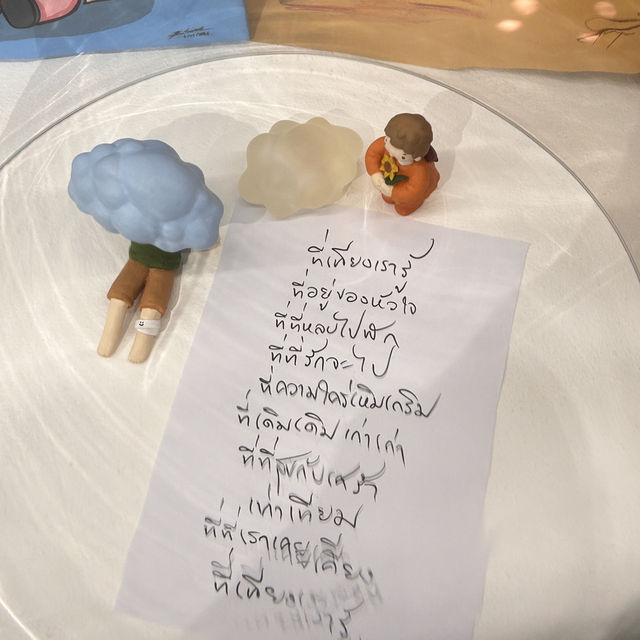 ที่เพียงเรารู้
ที่อยู่ของหัวใจ
ที่ที่หลบไปพัก
ที่ที่รักจะไป
ที่ความใคร่เหิมเกริม
ที่เดิมเดิม เก่าเก่า
ที่ที่สุขกับเศร้า
เท่าเทียม
ที่ที่เราเคยเคียง
ที่เพียงเรารู้